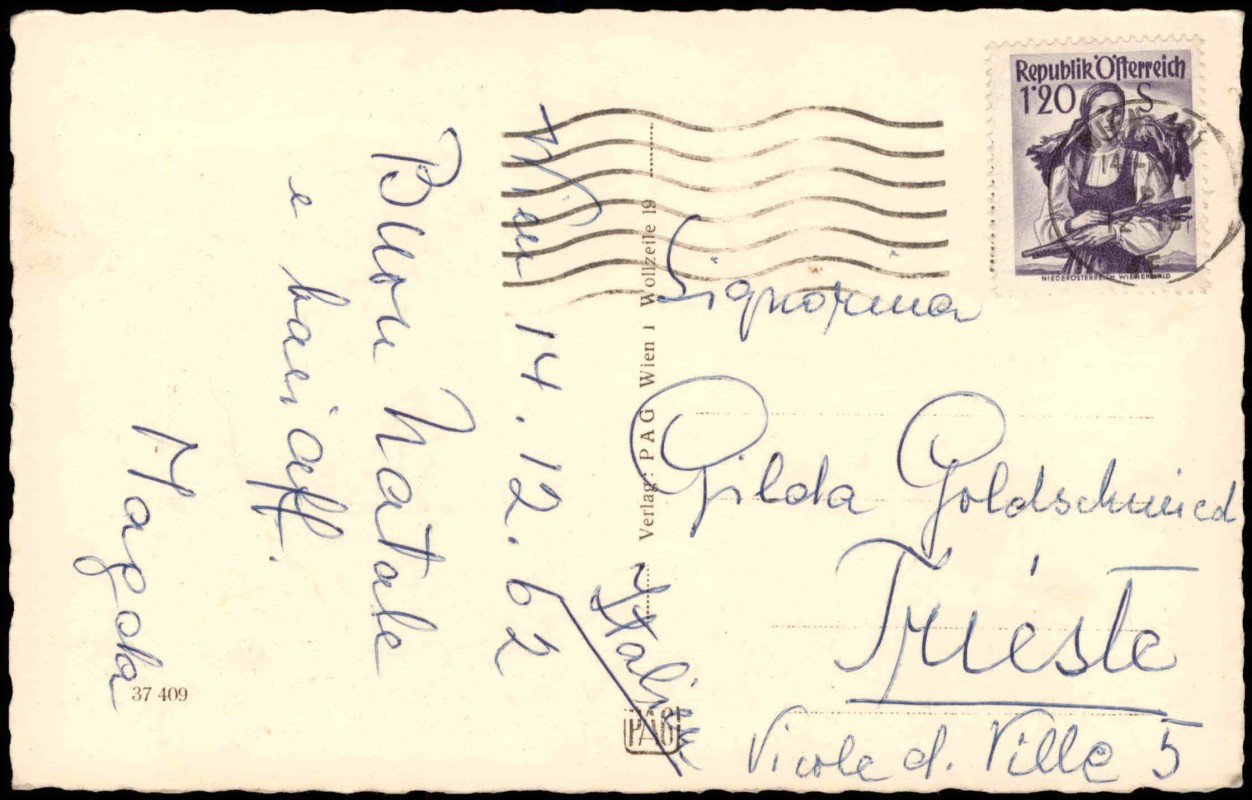 Wien 14.12.62
Buon Natale
e bacioff.
Magda
37 409
Verlag: PAG Wien 1 Wollzeile 19
PAG
Republik Österreich
1·20 S
NIEDERÖSTERREICH, WIENERWALD
WIEN 101
Signorina
Gilda Goldschmied
Trieste
Vicolo d. Ville 5
Italien